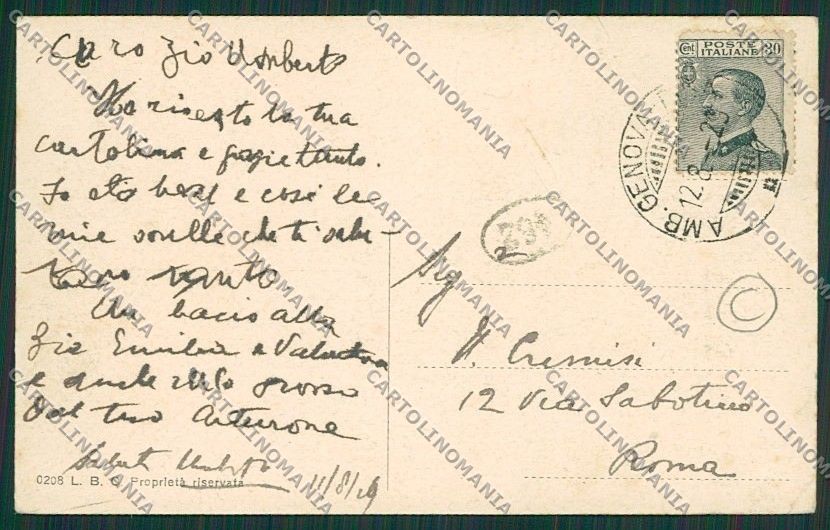 Caro Zio Umberto
Ho ricevuto la tua
cartolina e grazie tanto.
Io sto bene e così le
mie sorelle che ti salu-
tano tanto.
Un bacio alla
Zia Emilia e Valentina
e anche
dal tuo Arturone
Umberto 11/8/29
0208 L. B. G. Proprietà riservata
Cent POSTE ITALIANE 30
AMB. GENOVA
12.8
Sig
U. Cremisi
12 Via Sabotino
Roma
C
CARTOLINOMANIA